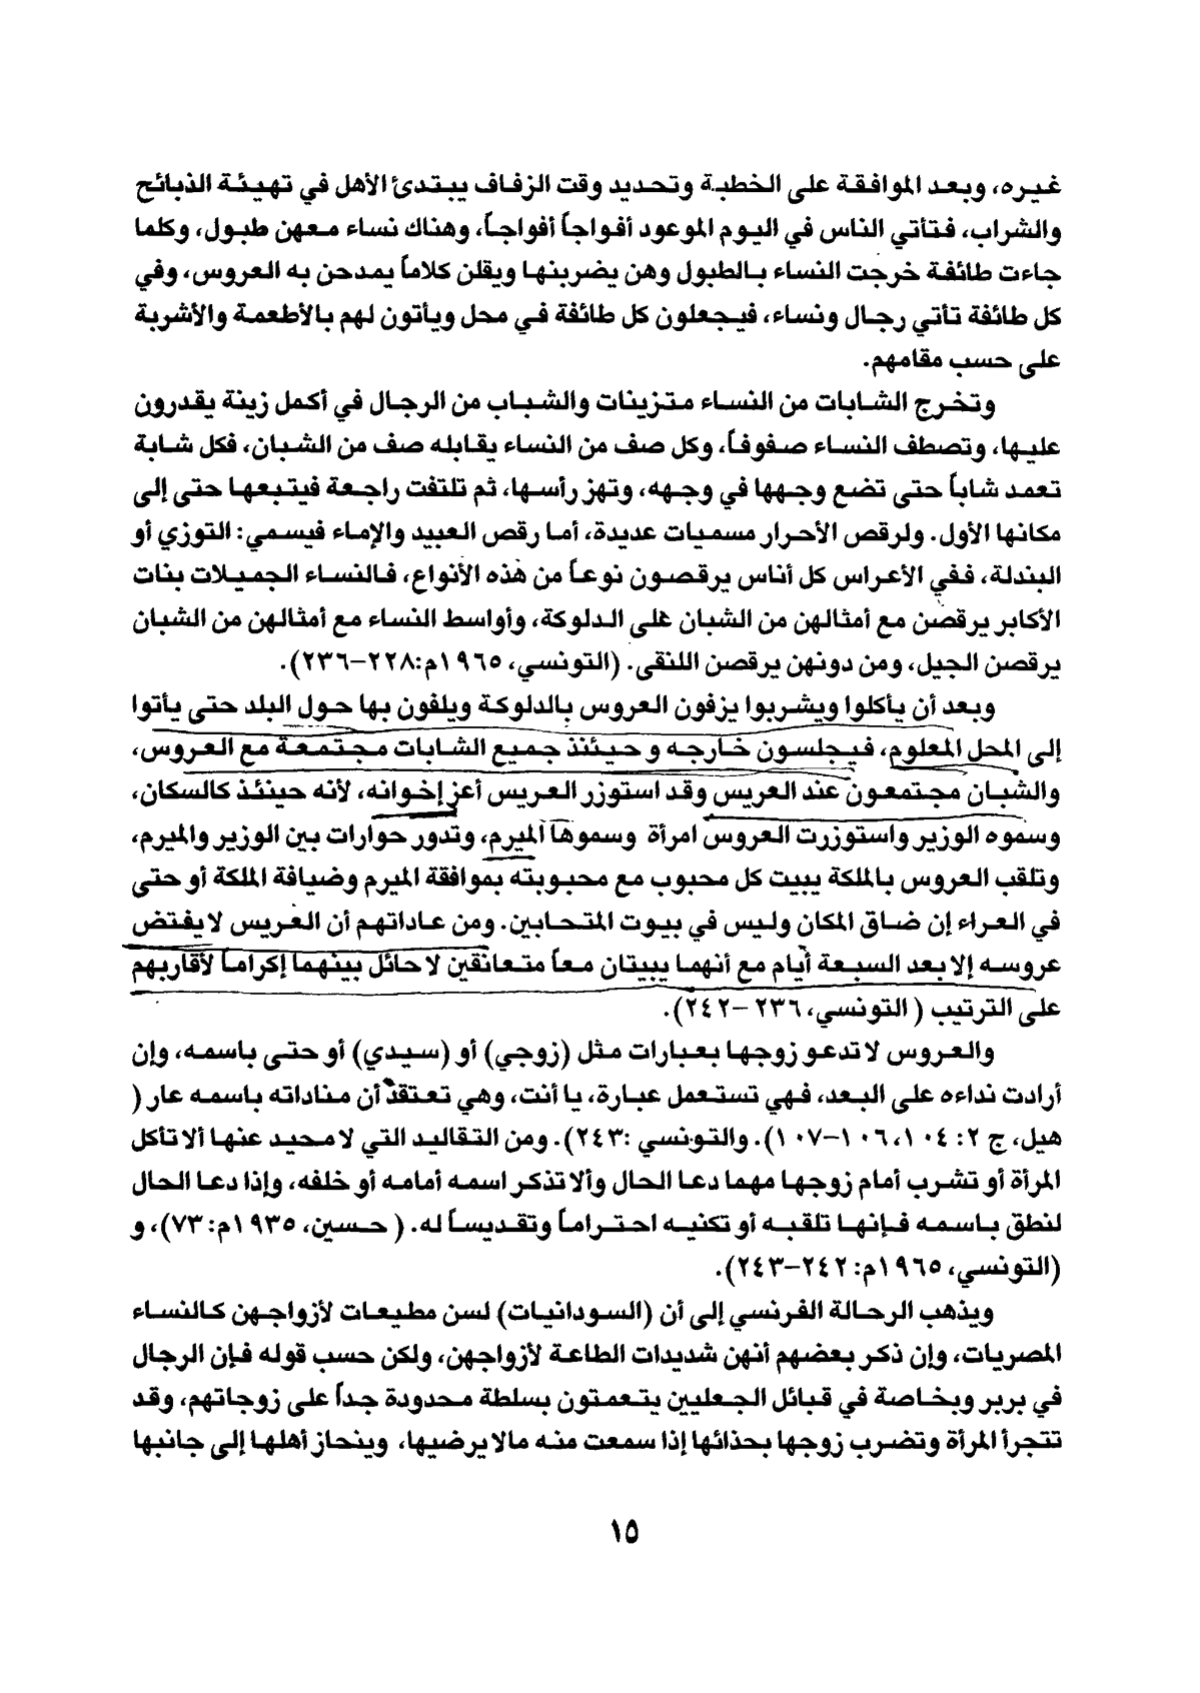 غيره، وبعد الموافقة على الخطبة وتحديد وقت الزفاف يبتدئ الأهل في تهيئة الذبائح
والشراب، فتأتي الناس في اليوم الموعود أفواجاً أفواجاً، وهناك نساء معهن طبول، وكلما
جاءت طائفة خرجت النساء بالطبول وهن يضربنها ويقلن كلاماً يمدحن به العروس، وفي
كل طائفة تأتي رجال ونساء، فيجعلون كل طائفة في محل ويأتون لهم بالأطعمة والأشربة
على حسب مقامهم.
وتخرج الشابات من النساء متزينات والشباب من الرجال في أكمل زينة يقدرون
عليها، وتصطف النساء صفوفاً، وكل صف من النساء يقابله صف من الشبان، فكل شابة
تعمد شاباً حتى تضع وجهها في وجهه، وتهز رأسها، ثم تلتفت راجعة فيتبعها حتى إلى
مكانها الأول. ولرقص الأحرار مسميات عديدة، أما رقص العبيد والإماء فيسمي: التوزي أو
البندلة، ففي الأعراس كل أناس يرقصون نوعاً من هذه الأنواع، فالنساء الجميلات بنات
الأكابر يرقصن مع أمثالهن من الشبان على الدلوكة، وأواسط النساء مع أمثالهن من الشبان
يرقصن الجيل، ومن دونهن يرقصن اللنقى. (التونسي، ١٩٦٥م:٢٢٨–٢٣٦).
وبعد أن يأكلوا ويشربوا يزفون العروس بالدلوكة ويلفون بها حول البلد حتى يأتوا
إلى المحل المعلوم، فيجلسون خارجه و حيئنذ جميع الشابات مجتمعة مع العروس،
والشبان مجتمعون عند العريس وقد استوزر العريس أعز إخوانه، لأنه حينئذ كالسكان،
وسموه الوزير واستوزرت العروس امرأة وسموها الميرم، وتدور حوارات بين الوزير والميرم،
وتلقب العروس بالملكة يبيت كل محبوب مع محبوبته بموافقة الميرم وضيافة الملكة أو حتى
في العراء إن ضاق المكان وليس في بيوت المتحابين. ومن عاداتهم أن العريس لا يفتض
عروسه إلا بعد السبعة أيام مع أنهما يبيتان معاً متعانقين لا حائل بينهما إكراماً لأقاربهم
على الترتيب ( التونسي، ٢٣٦ –٢٤٢).
والعروس لا تدعو زوجها بعبارات مثل (زوجي) أو (سيدي) أو حتى باسمه، وإن
أرادت نداءه على البعد، فهي تستعمل عبارة، يا أنت، وهي تعتقد أن مناداته باسمه عار (
هيل، ج ٢: ١٠٤، ١٠٦–١٠٧). والتونسي :٢٤٣). ومن التقاليد التي لا محيد عنها ألا تأكل
المرأة أو تشرب أمام زوجها مهما دعا الحال وألا تذكر اسمه أمامه أو خلفه، وإذا دعا الحال
لنطق باسمه فإنها تلقبه أو تكنيه احتراماً وتقديساً له. ( حسين، ١٩٣٥م: ٧٣)، و
(التونسي، ١٩٦٥م: ٢٤٢–٢٤٣).
ويذهب الرحالة الفرنسي إلى أن (السودانيات) لسن مطيعات لأزواجهن كالنساء
المصريات، وإن ذكر بعضهم أنهن شديدات الطاعة لأزواجهن، ولكن حسب قوله فإن الرجال
في بربر وبخاصة في قبائل الجعليين يتعمتون بسلطة محدودة جداً على زوجاتهم، وقد
تتجرأ المرأة وتضرب زوجها بحذائها إذا سمعت منه مالا يرضيها، وينحاز أهلها إلى جانبها
١٥